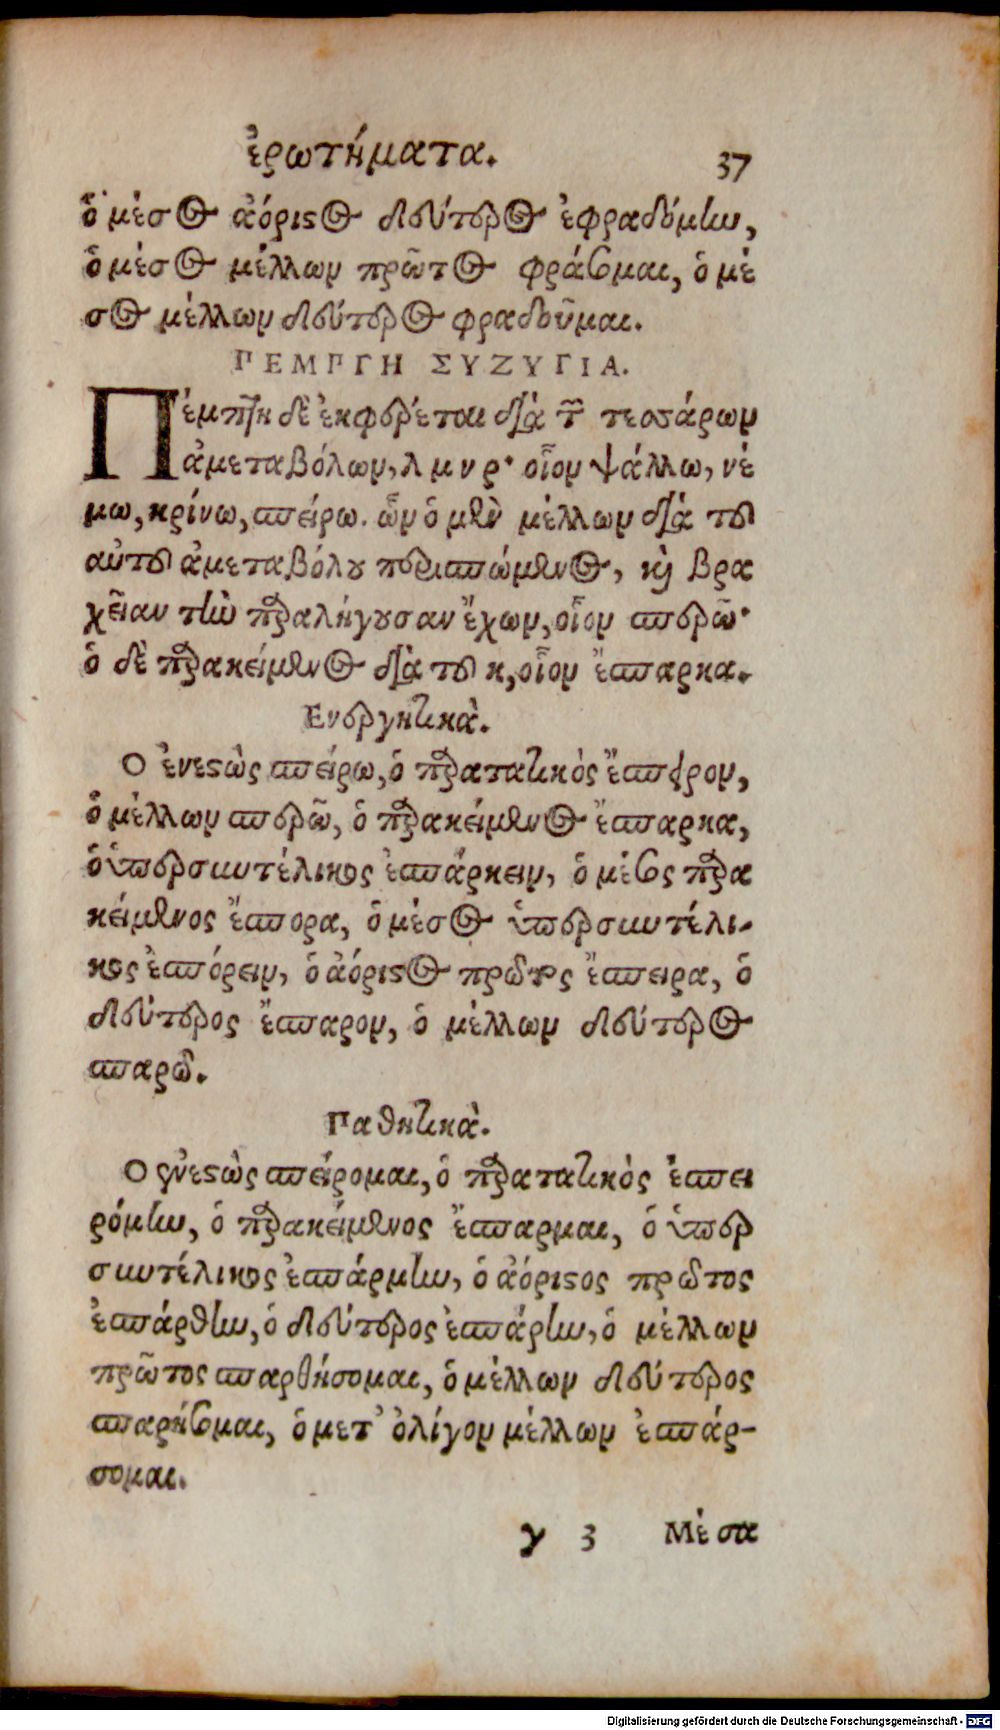 ἐρωτήματα. 37
ὁ μέσος ἀόριστος δεύτερος ἐφραδόμην,
ὁ μέσος μέλλων πρῶτος φράσομαι, ὁ μέ
σος μέλλων δεύτερος φραδοῦμαι.
ΠΕΜΠΤΗ ΣΥΖΥΓΙΑ.
Πέμπτη δὲ ἐκφέρεται διὰ τῶν τεσσάρων
ἀμεταβόλων, λ μ ν ρ· οἷον ψάλλω, νέ
μω, κρίνω, σπείρω. ὧν ὁ μὲν μέλλων διὰ τοῦ
αὐτοῦ ἀμεταβόλου περισπώμενος, καὶ βρα
χεῖαν τὴν παραλήγουσαν ἔχων, οἷον σπερῶ·
ὁ δὲ παρακείμενος διὰ τοῦ κ, οἷον ἔσπαρκα.
Ενεργητικὰ.
Ο ἐνεστὼς σπείρω, ὁ παρατατικὸς ἔσπειρον,
ὁ μέλλων σπερῶ, ὁ παρακείμενος ἔσπαρκα,
ὁ ὑπερσυντέλικος ἐσπάρκειν, ὁ μέσος παρα
κείμενος ἔσπορα, ὁ μέσος ὑπερσυντέλι-
κος ἐσπόρειν, ὁ ἀόριστος πρῶτος ἔσπειρα, ὁ
δεύτερος ἔσπαρον, ὁ μέλλων δεύτερος
σπαρῶ.
Παθητικὰ.
Ο ἐνεστὼς σπείρομαι, ὁ παρατατικὸς ἐσπει
ρόμην, ὁ παρακείμενος ἔσπαρμαι, ὁ ὑπερ
συντέλικος ἐσπάρμην, ὁ ἀόριστος πρῶτος
ἐσπάρθην, ὁ δεύτερος ἐσπάρην, ὁ μέλλων
πρῶτος σπαρθήσομαι, ὁ μέλλων δεύτερος
σπαρήσομαι, ὁ μετ' ὀλίγον μέλλων ἐσπάρ-
σομαι.
γ 3 Μέσα
Digitalisierung gefördert durch die Deutsche Forschungsgemeinschaft - DFG